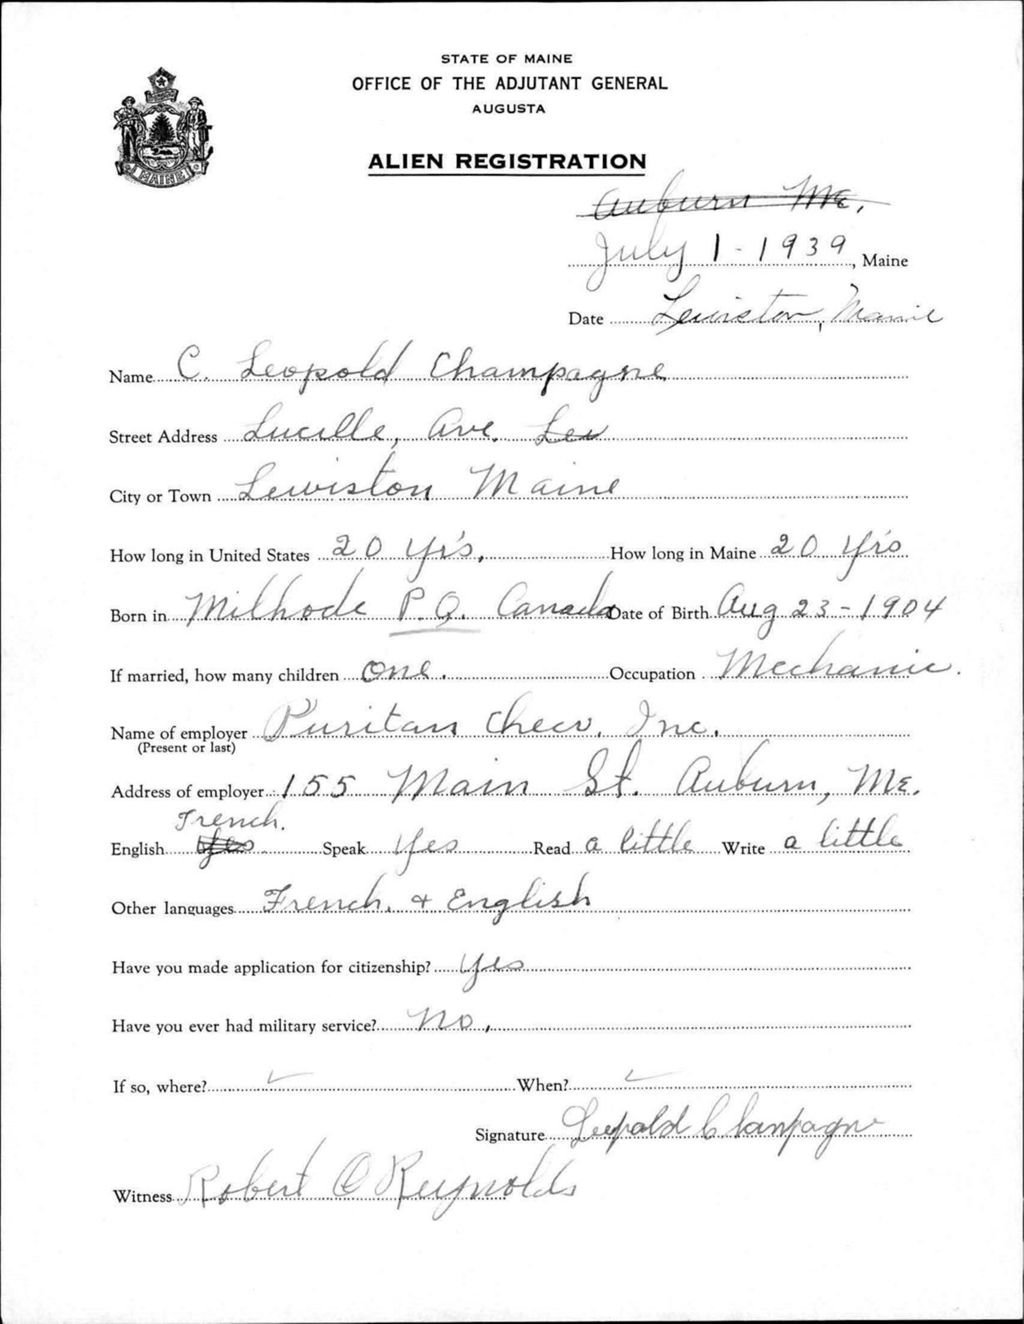 STATE OF MAINE
OFFICE OF THE ADJUTANT GENERAL
AUGUSTA
MAINE
ALIEN REGISTRATION
Auburn Me.
July 1 - 1939, Maine
Date Lewiston, Maine
Name C. Leopold Champagne
Street Address Lucille, Ave. Lew
City or Town Lewiston Maine
How long in United States 20 Yr's, How long in Maine 20 Yrs
Born in Milhode P.Q. Canada Date of Birth Aug 23 - 1904
If married, how many children One. Occupation Mechanic.
Name of employer Puritan Inc.
(Present or last)
Address of employer 155 Main St. Auburn, Me.
French.
English Yes Speak Yes Read a little Write a little
Other languages French, + English
Have you made application for citizenship? Yes
Have you ever had military service? No,
If so, where? When?
Signature Leopold Champagne
Witness Robert O Reynolds